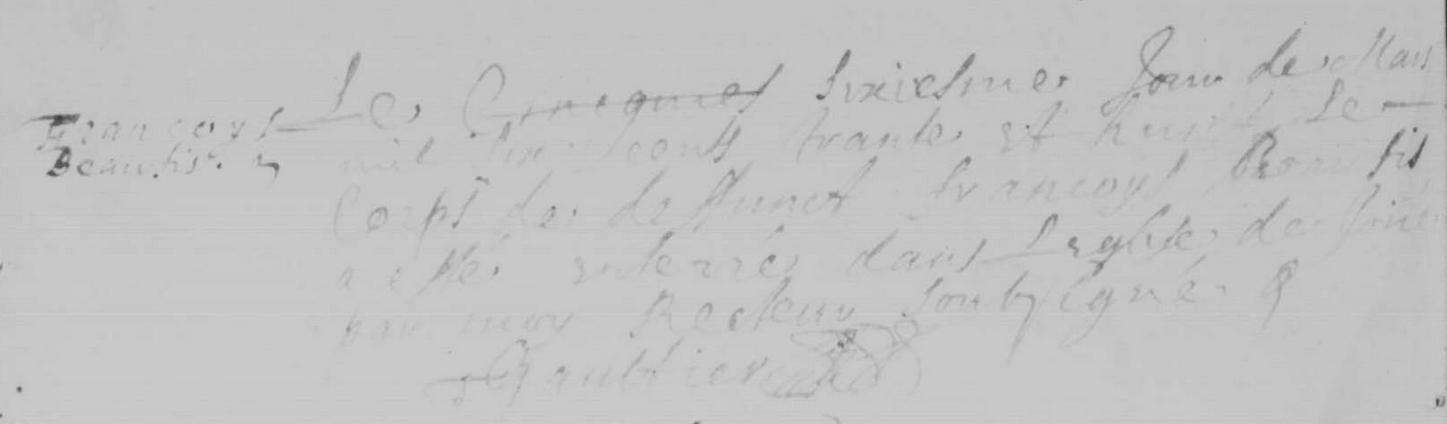 Francoys
Beaufis
Le Cinquies sixiesme Jour de Mars
mil six cents trante et huyct Le
Corps de deffunct Francoys Beaufils
a esté enterré dans Leglise de
par moy Recteur soubsigné
Gaultier